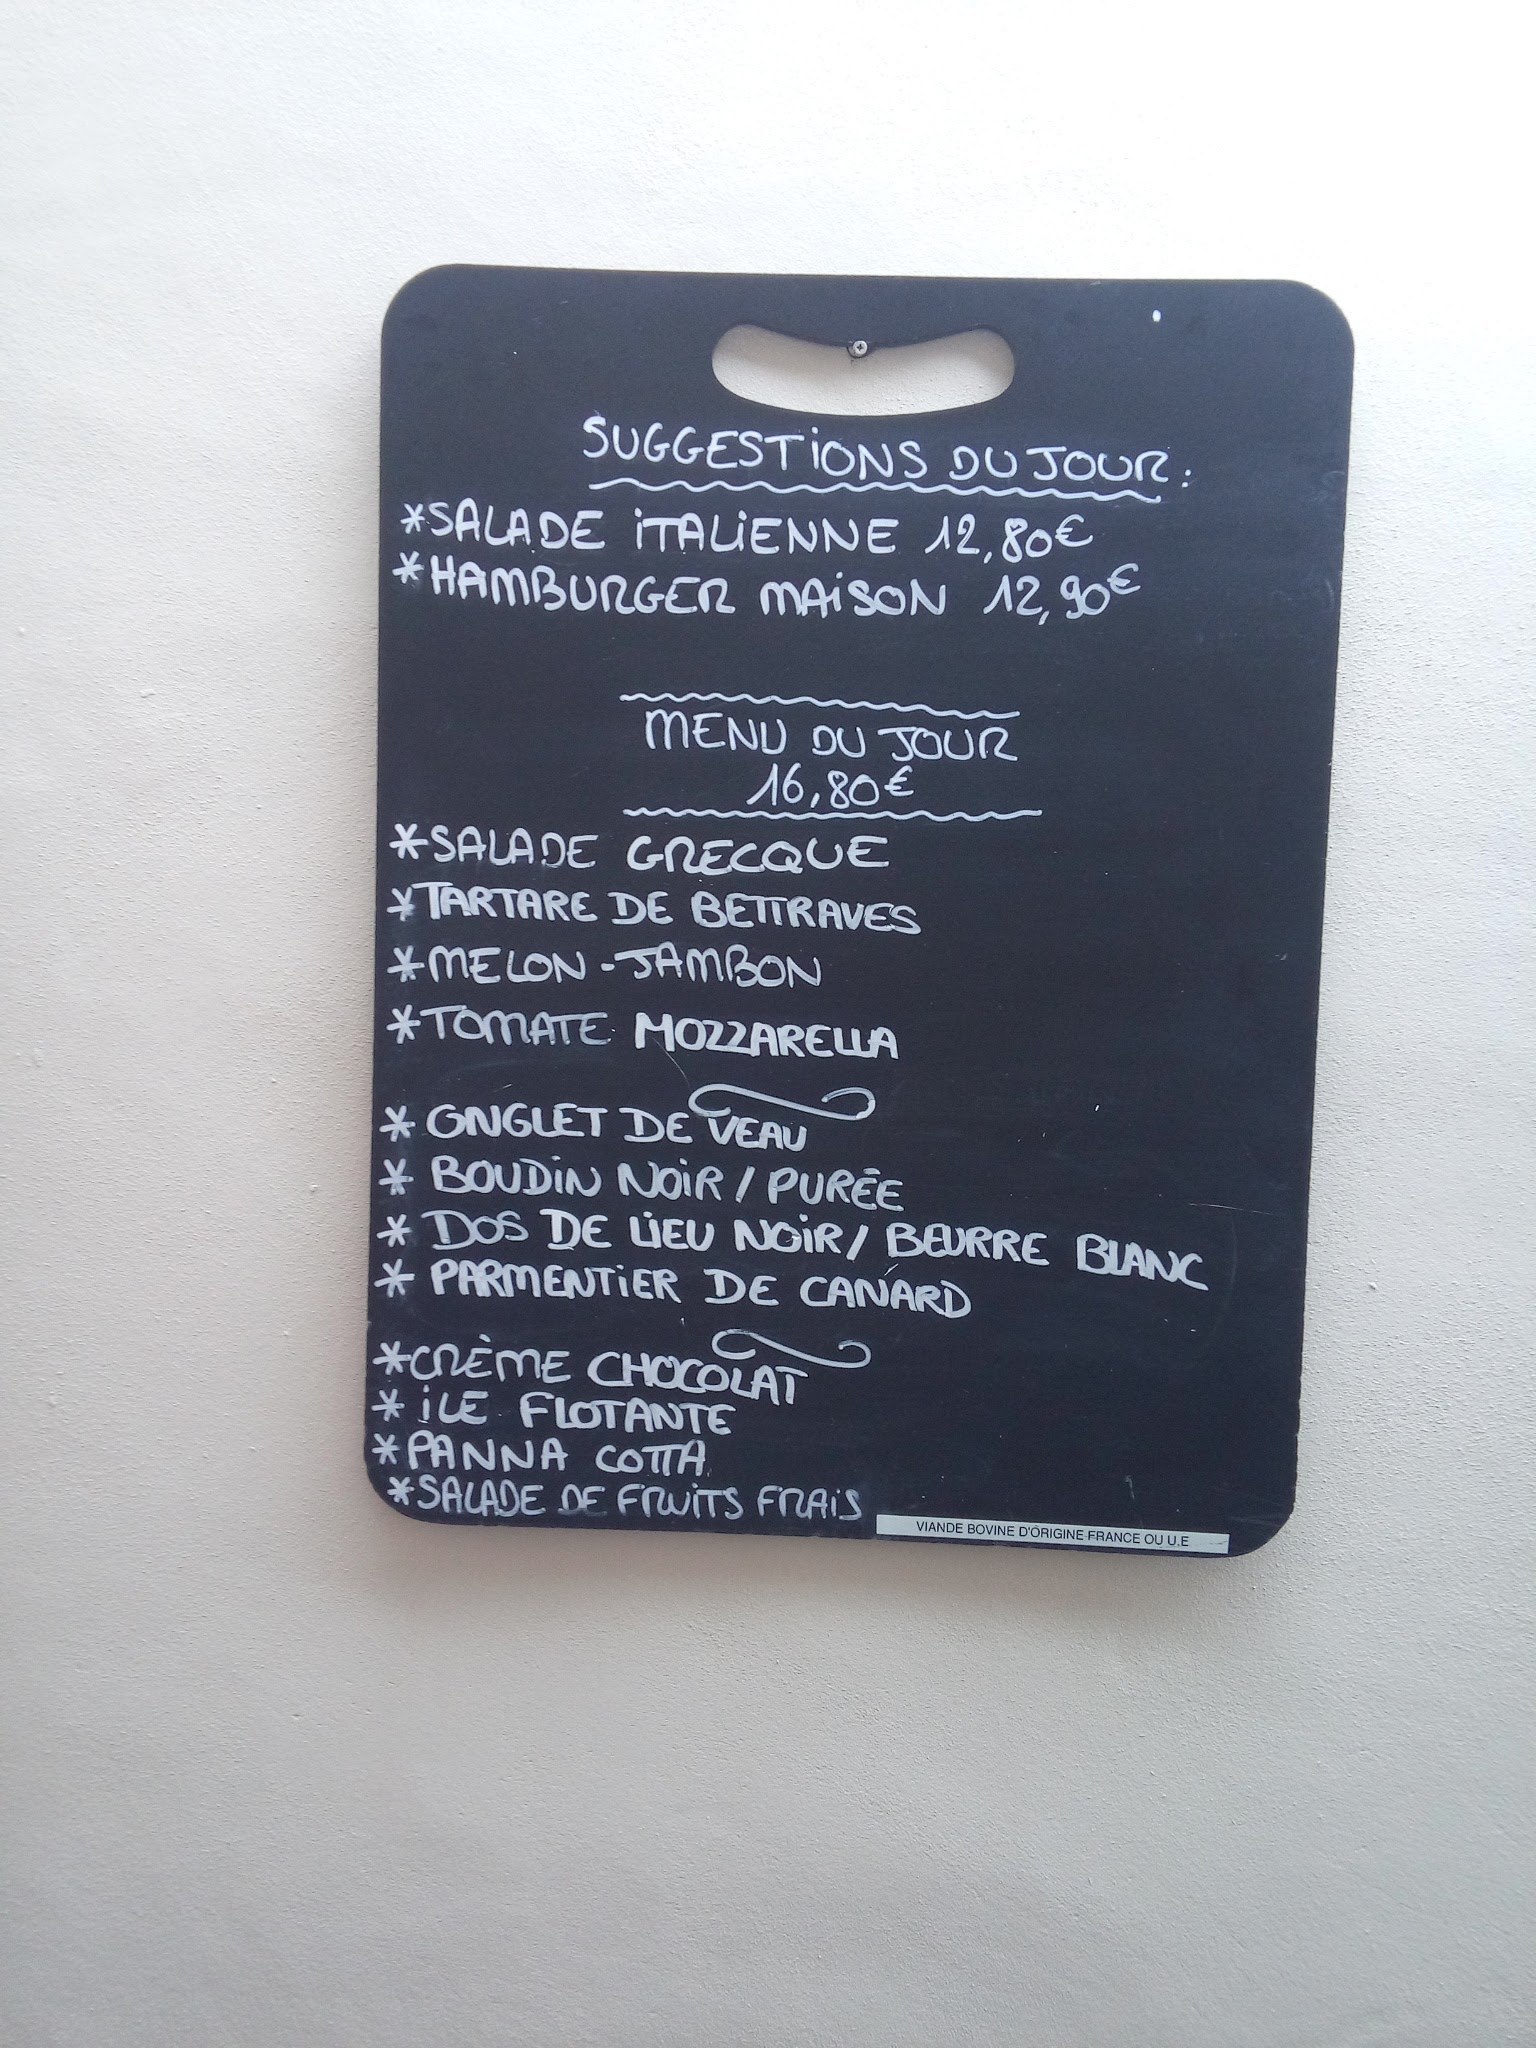 SUGGESTIONS DU JOUR :
*SALADE ITALIENNE 12,80€
*HAMBURGER MAISON 12,90€
MENU DU JOUR
16,80€
*SALADE GRECQUE
*TARTARE DE BETTRAVES
*MELON-JAMBON
*TOMATE MOZZARELLA
* ONGLET DE VEAU
* BOUDIN NOIR / PURÉE
* DOS DE LIEU NOIR / BEURRE BLANC
* PARMENTIER DE CANARD
*CRÈME CHOCOLAT
* ILE FLOTANTE
*PANNA COTTA
*SALADE DE FRUITS FRAIS
VIANDE BOVINE D'ORIGINE FRANCE OU U.E